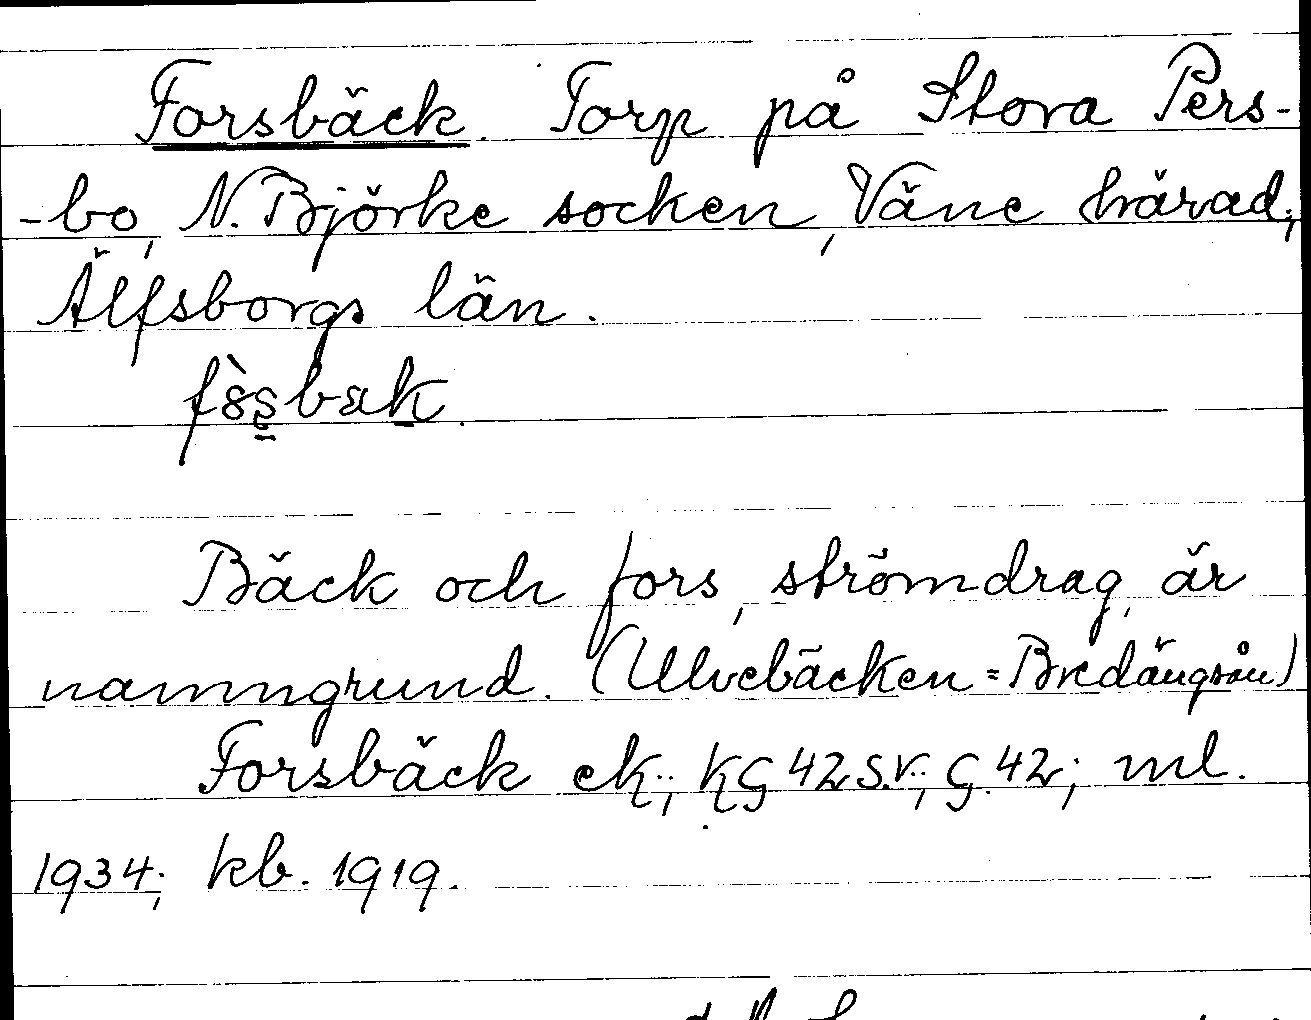 Forsbäck. Torp på Stora Pers-
-bo, N. Björke socken, Väne härad;
Älfsborgs län.
Bäck och fors, strömdrag, är
namngrund. (Ulvebäcken = Bredängsån)
Forsbäck ek.; KG 42 S.V.; G. 42; ml.
1934; kb. 1919.